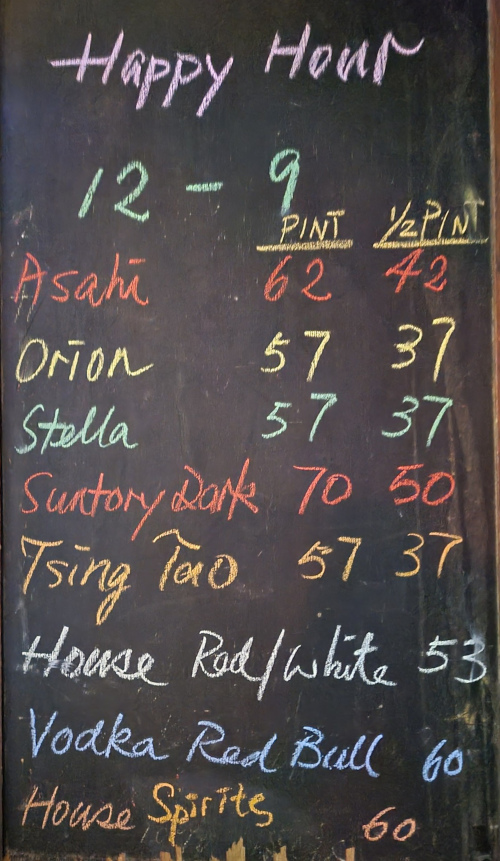 Happy Hour
12 - 9
PINT 1/2 PINT
Asahi 62 42
Orion 57 37
Stella 57 37
Suntory Dark 70 50
Tsing Tao 57 37
House Red/White 53
Vodka Red Bull 60
House Spirits 60